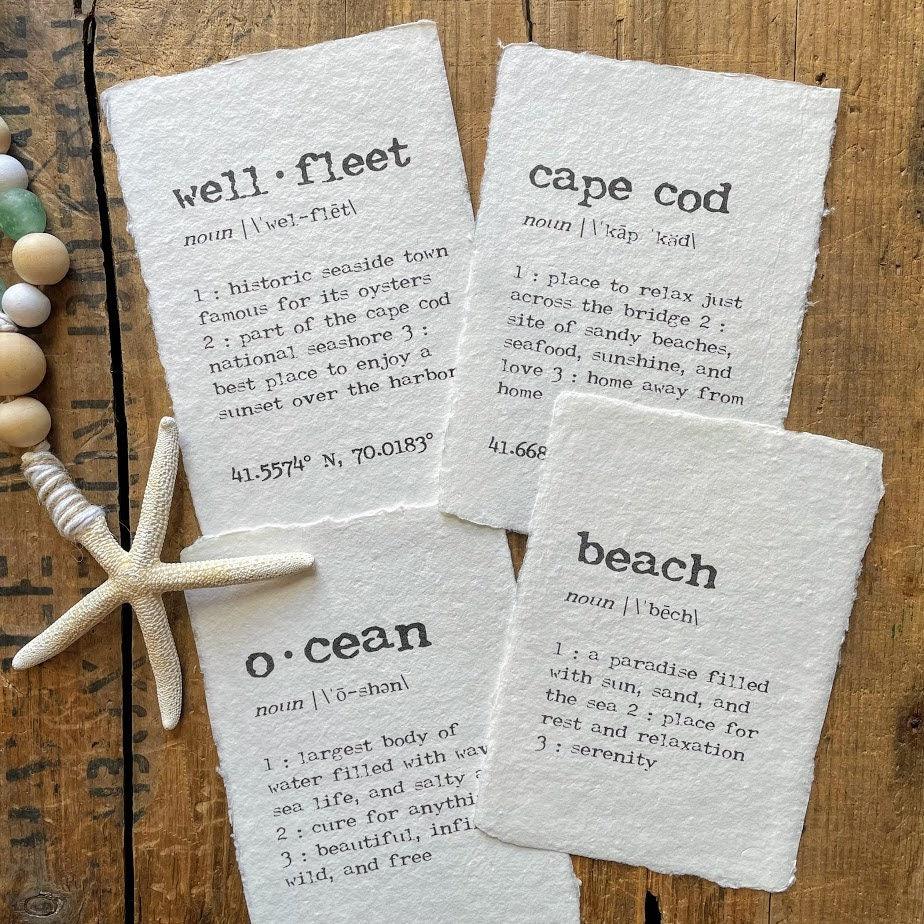 well·fleet
noun |\ˈwel-flēt\
1 : historic seaside town
famous for its oysters
2 : part of the cape cod
national seashore 3 :
best place to enjoy a
sunset over the harbor
41.5574° N, 70.0183°
cape cod
noun |\ˈkāp ˈkäd\
1 : place to relax just
across the bridge 2 :
site of sandy beaches,
seafood, sunshine, and
love 3 : home away from
home
41.668
o·cean
noun |\ˈō-shən\
1 : largest body of
water filled with
sea life, and salty
2 : cure for
3 : beautiful,
wild, and free
beach
noun |\ˈbēch\
1 : a paradise filled
with sun, sand, and
the sea 2 : place for
rest and relaxation
3 : serenity